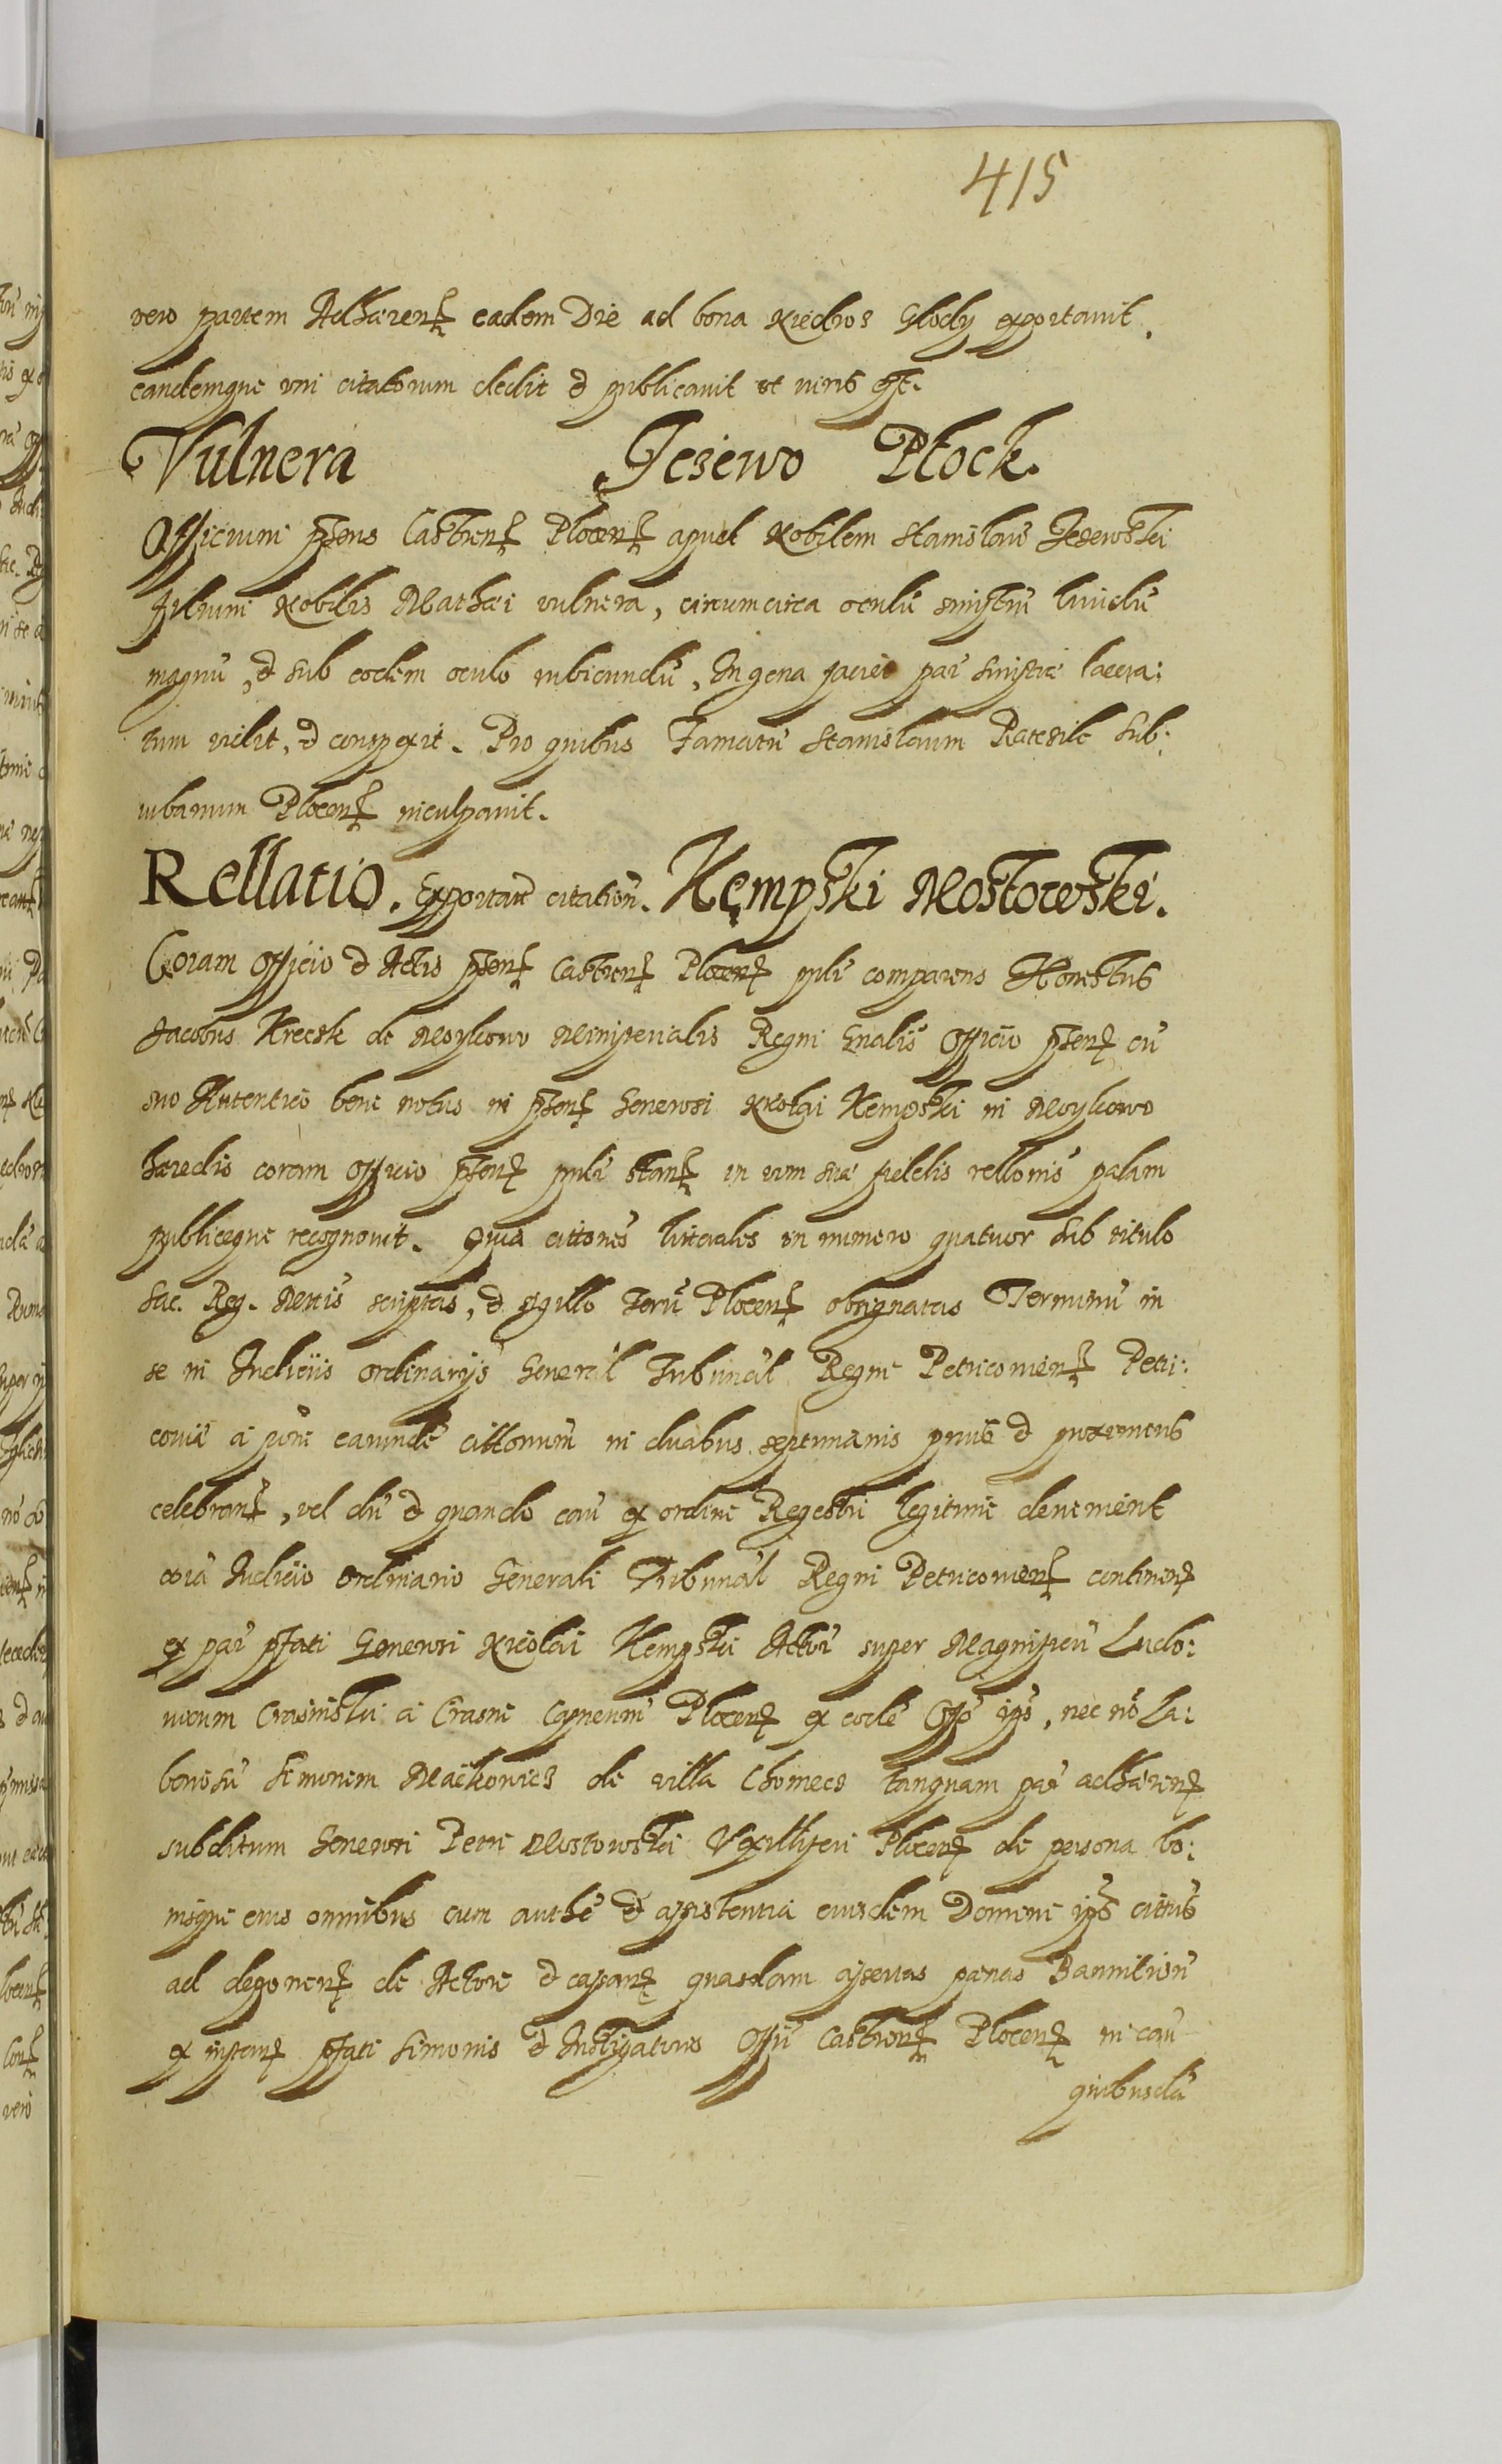 415
vero partem Adhærenꝭ eadem Die ad bona Niedros Glody exportavit.
eandemque uni citatorum dedit et publicavit ut viris est.
Vulnera Jesewo Plock.
Officium pñens Castrenꝭ Plocenꝭ apud Nobilem Stanislaũ Jesewski
filium Nobilis Mathæi vulnera, circumcirca oculũ sinistrũ lividũ
magnũ, et sub eodem oculo rubicundũ, In gena faciei par sinistræ lacera:
tum vidit, et conspexit. Pro quibus Famatũ Stanislaum Rateside sub:
urbanum Plocenꝭ inculpavit.
Rellatio. Exportatæ citationũ. Kempski Mostowski.
Coram Officio et Actis pñenꝭ Castrenꝭ Plocenꝭ pnłr comparens Honestus
Jacobus Kreczk de Moykowo Ministerialis Regni Gnalis Officio pñenꝭ cũ
suo Autentico bene notus in pñenꝭ Generosi Nicolai Kempski in Moykowo
hæredis coram Officio pñenꝭ pnłr stanꝭ in vim suæ fidelis rellonis palam
publiceque recognovit. Quia cittones litterales in numero quatuor sub titulo
Sac. Reg. Mttis scriptas, et sigillo Terrũ Plocenꝭ obsignatas Terminũ in
se in Judiciis ordinarijs General Tribunal Regni Petricovienꝭ Petri:
coviæ a põne earundẽ cittonum in duabus septimanis prius et proximius
celebranꝭ, vel dũ et quando cau ex ordine Regestri legitime devenient
corã Judicio Ordinario Generali Tribunal Regni Petricovienꝭ continenꝭ
ex par pfati Generosi Nicolai Kempski Actõr super Magnificũ Ludo:
vicum Crasinski a Crasne Capneum Plocenꝭ ex eodẽ Offo ipõ, nec nõ La:
boriosũ Simonem Maćkowicz de villa Chomecz tanquam par adhærenꝭ
subditum Generosi Petri Mostowski Vexilliferi Plocenꝭ de persona bo:
nisque eius omnibus cum authẽ et assistentia eiusdem Domini ipõ cittus
ad deponenꝭ de Actore et cassanꝭ quasdam assertas pænas Bannitionũ
ex instanꝭ pfati Simonis et Instigatoris Offii Castrenꝭ Plocenꝭ in cau
quibusdã